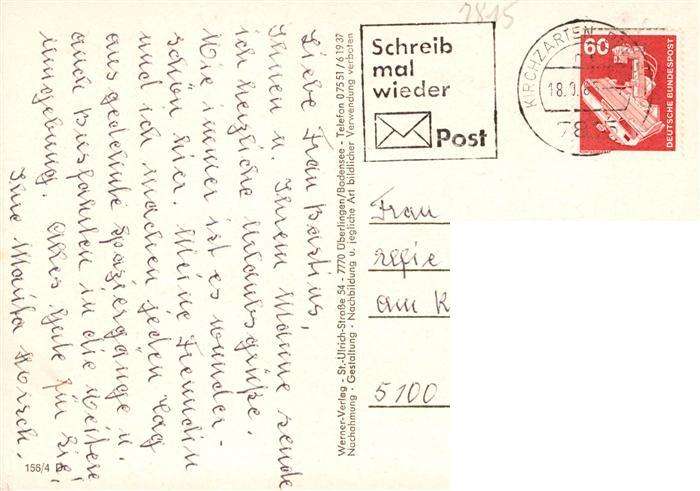 Liebe Frau Bastius,
Ihnen u. Ihrem Manne sende
ich herzliche Urlaubsgrüße.
Wie immer ist es wunder-
schön hier. Meine Freundin
und ich machen jeden Tag
ausgedehnte Spaziergänge u.
auch Busfahrten in die weitere
Umgebung. Alles Gute für Sie,
Ihre Marita Korsch.
156/4 D
Werner-Verlag - St.-Ulrich-Straße 54 - 7770 Überlingen/Bodensee - Telefon 07551/61937
Nachahmung - Gestaltung - Nachbildung u. jegliche Art bildlicher Verwendung verboten
7815
Schreib
mal
wieder
Post
KIRCHZARTEN
18.9.8
78
60
DEUTSCHE BUNDESPOST
Frau
Am K
5100